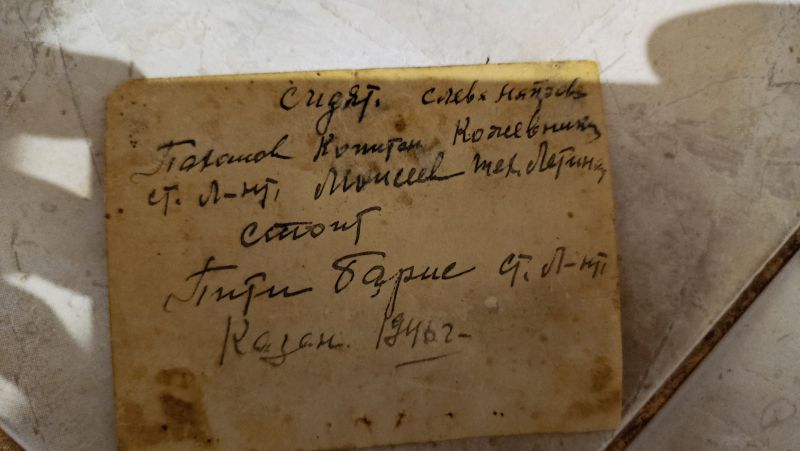 сидят. слева направо
Капитан Кожевник
ст. Л-нт. Моисеев тех. Летина
стоит
Пити Барис ст. Л-нт.
Казан. 1946 г.